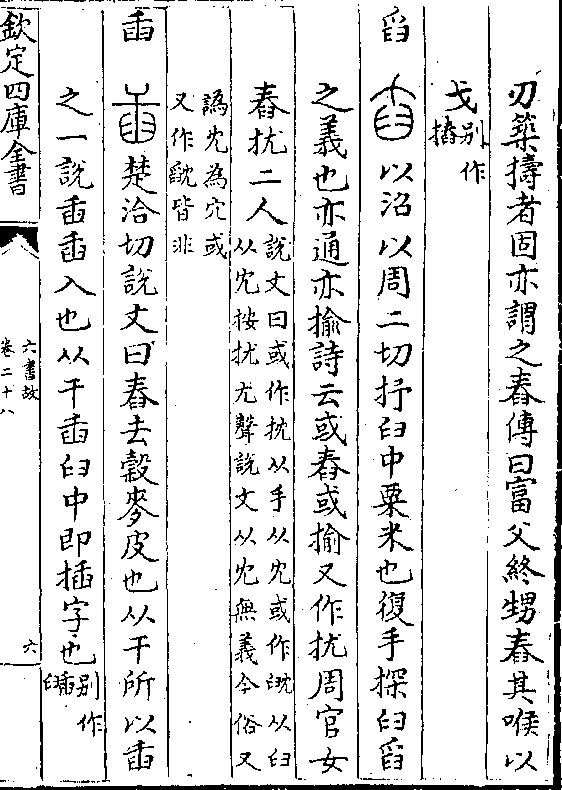 刃築擣者固亦謂之舂傳曰富父終甥舂其喉以
戈别作𢵧
舀 以沼以周二切抒臼中粟米也復手探臼舀
之義也亦通亦揄詩云或舂或揄又作抭周官女
舂抭二人説文曰或作㧒从手从宂或作𦥽从臼
从宂按抭尤聲説文从宂無義今俗又
譌宂為穴或
又作皆非
臿 楚洽切説文曰舂去榖麥皮也从干所以臿
之一説臿臿入也从干臿臼中即插字也别作
欽定四庫全書
六書故
卷二十八
六